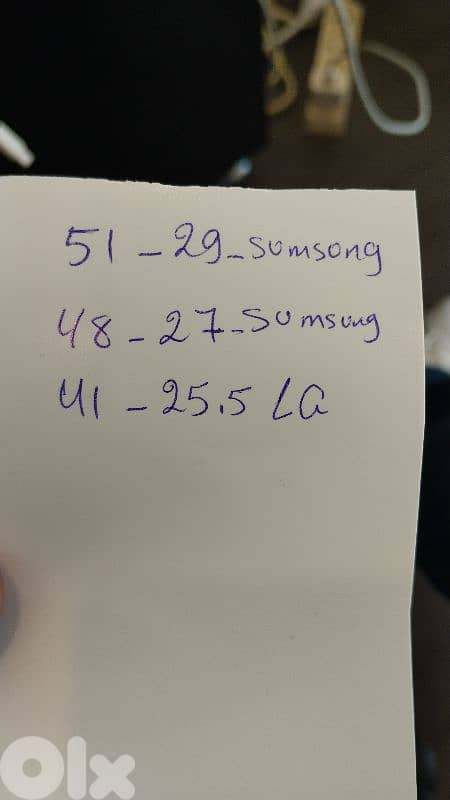 51 - 29 - Somsong
48 - 27 - Somsung
41 - 25.5 LG
OLX